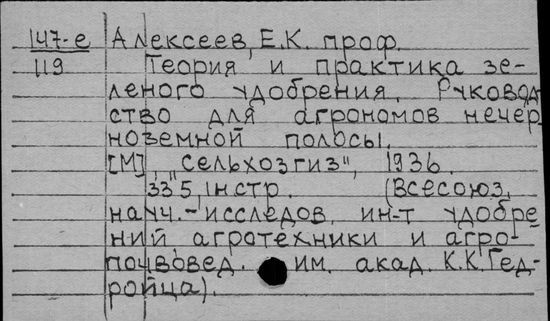 147-е Алексеев, Е.К. проф.
119 Теория и практика зе-
леного удобрения. Руковод
ство для агрономов нечер
ноземной полосы.
[М], „Сельхозгиз", 1936.
335, 1 н стр. (Всесоюз.
науч.-исследов. ин-т удобре
ний, агротехники и агро-
почвовед. им. акад. К.К. Гед-
ройца).